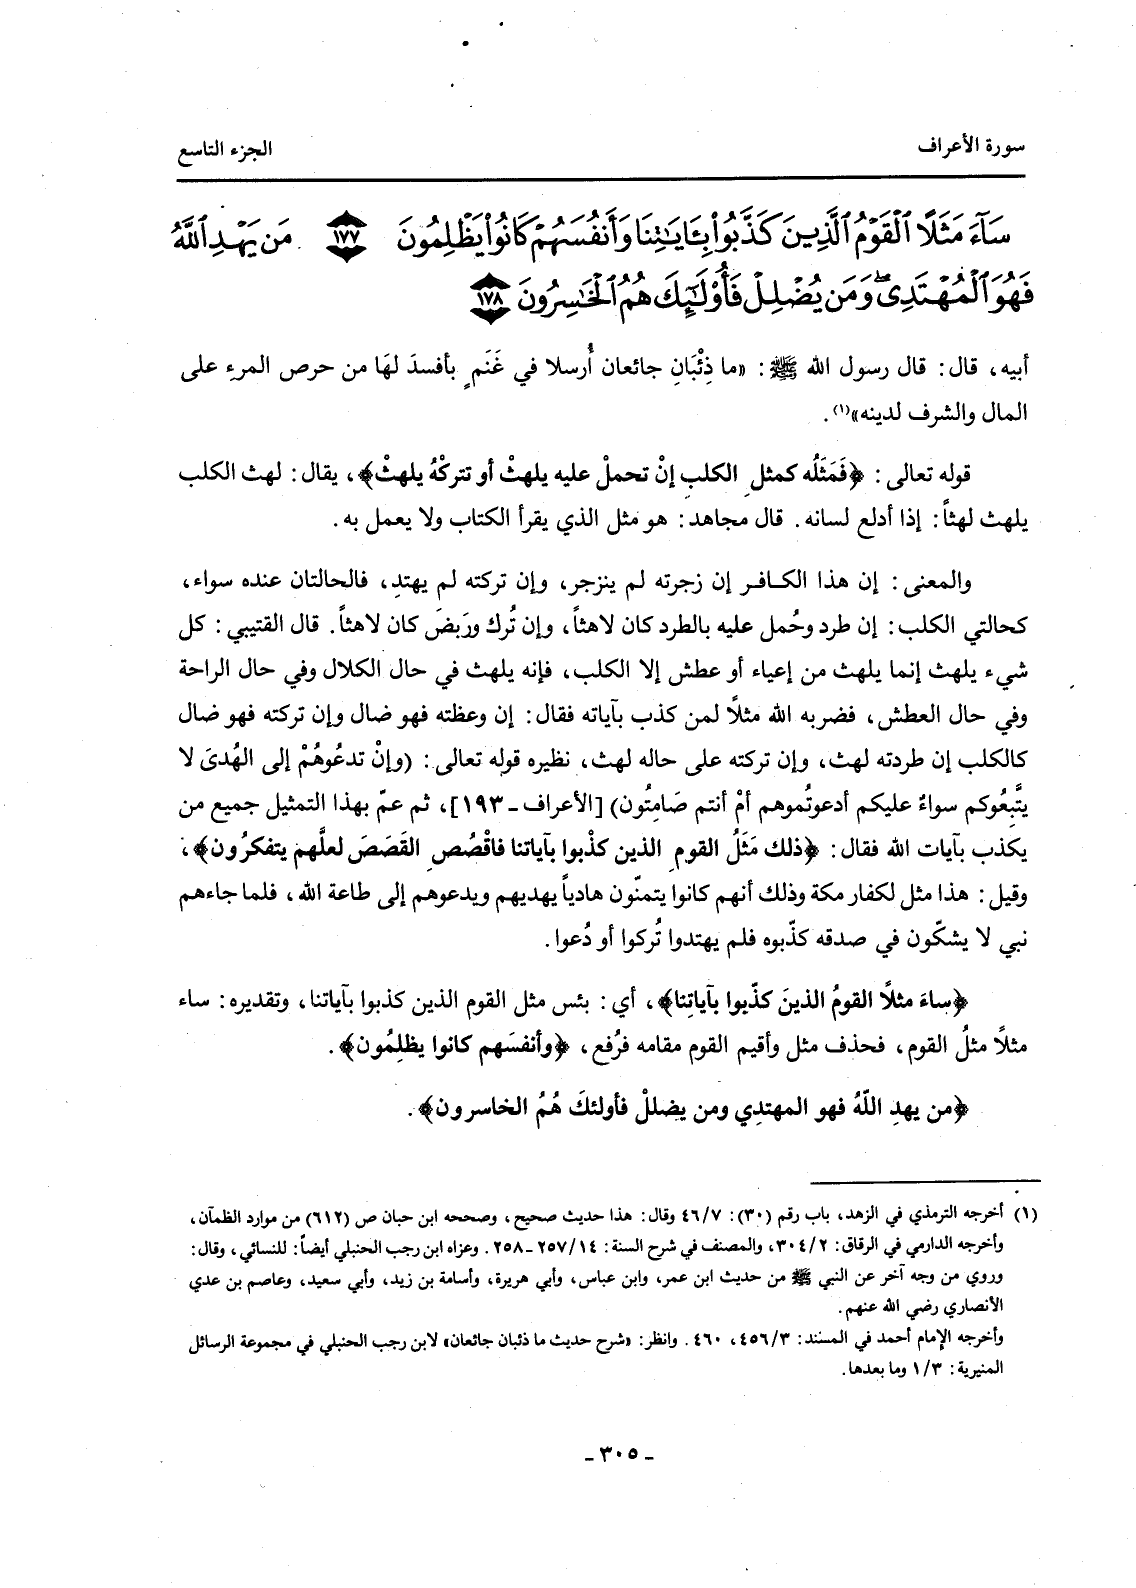 سورة الأعراف
الجزء التاسع
سَآءَ مَثَلًا ٱلْقَوْمُ ٱلَّذِينَ كَذَّبُوا۟ بِـَٔايَـٰتِنَا وَأَنفُسَهُمْ كَانُوا۟ يَظْلِمُونَ ١٧٧ مَن يَهْدِ ٱللَّهُ
فَهُوَ ٱلْمُهْتَدِى وَمَن يُضْلِلْ فَأُو۟لَـٰٓئِكَ هُمُ ٱلْخَـٰسِرُونَ ١٧٨
أبيه، قال: قال رسول الله ﷺ: «ما ذِئْبَانِ جائعان أُرسلا في غَنَمٍ بأفسدَ لهَا من حرص المرءِ على
المال والشرف لدينه»(١).
قوله تعالى: ﴿فَمَثَلُه كمثلِ الكلبِ إنْ تحملْ عليه يلهثْ أو تتركْهُ يلهثْ﴾، يقال: لهث الكلب
يلهث لهثاً: إذا أدلع لسانه. قال مجاهد: هو مثل الذي يقرأ الكتاب ولا يعمل به.
والمعنى: إن هذا الكـافـر إن زجرته لم ينزجر، وإن تركته لم يهتدِ، فالحالتان عنده سواء،
كحالتي الكلب: إن طرد وحُمل عليه بالطرد كان لاهثاً، وإن تُرك ورَبضَ كان لاهثاً. قال القتيبي: كل
شيء يلهث إنما يلهث من إعياء أو عطش إلا الكلب، فإنه يلهث في حال الكلال وفي حال الراحة
وفي حال العطش، فضربه الله مثلًا لمن كذب بآياته فقال: إن وعظته فهو ضال وإن تركته فهو ضال
كالكلب إن طردته لهث، وإن تركته على حاله لهث، نظيره قوله تعالى: (وإنْ تدعُوهُمْ إلى الهُدىَ لا
يتَّبِعُوكم سواءٌ عليكم أدعوتُموهم أمْ أنتم صَامِتُون) [الأعراف ـ ١٩٣]، ثم عمّ بهذا التمثيل جميع من
يكذب بآيات الله فقال: ﴿ذلك مَثَلُ القومِ الذين كذْبوا بآياتنا فاقْصُصِ القَصَصَ لعلَّهم يتفكرُون﴾،
وقيل: هذا مثل لكفار مكة وذلك أنهم كانوا يتمنّون هادياً يهديهم ويدعوهم إلى طاعة الله، فلما جاءهم
نبي لا يشكّون في صدقه كذّبوه فلم يهتدوا تُركوا أو دُعوا.
﴿ساءَ مثلًا القومُ الذينَ كذّبوا بآياتِنا﴾، أي: بئس مثل القوم الذين كذبوا بآياتنا، وتقديره: ساء
مثلًا مثلُ القوم، فحذف مثل وأقيم القوم مقامه فرُفع، ﴿وأنفسَهم كانوا يظلِمُون﴾.
﴿من يهدِ اللّهُ فهو المهتدِي ومن يضللْ فأولئكَ هُمُ الخاسرون﴾.
(١) أخرجه الترمذي في الزهد، باب رقم (٣٠): ٤٦/٧ وقال: هذا حديث صحيح، وصححه ابن حبان ص (٦١٢) من موارد الظمآن،
وأخرجه الدارمي في الرقاق: ٣٠٤/٢، والمصنف في شرح السنة: ٢٥٧/١٤ ـ ٢٥٨. وعزاه ابن رجب الحنبلي أيضاً: للنسائي، وقال:
وروي من وجه آخر عن النبي ﷺ من حديث ابن عمر، وابن عباس، وأبي هريرة، وأسامة بن زيد، وأبي سعيد، وعاصم بن عدي
الأنصاري رضي الله عنهم.
وأخرجه الإمام أحمد في المسند: ٤٥٦/٣، ٤٦٠. وانظر: «شرح حديث ما ذئبان جائعان» لابن رجب الحنبلي في مجموعة الرسائل
المنيرية: ١/٣ وما بعدها.
ـ ٣٠٥ ـ